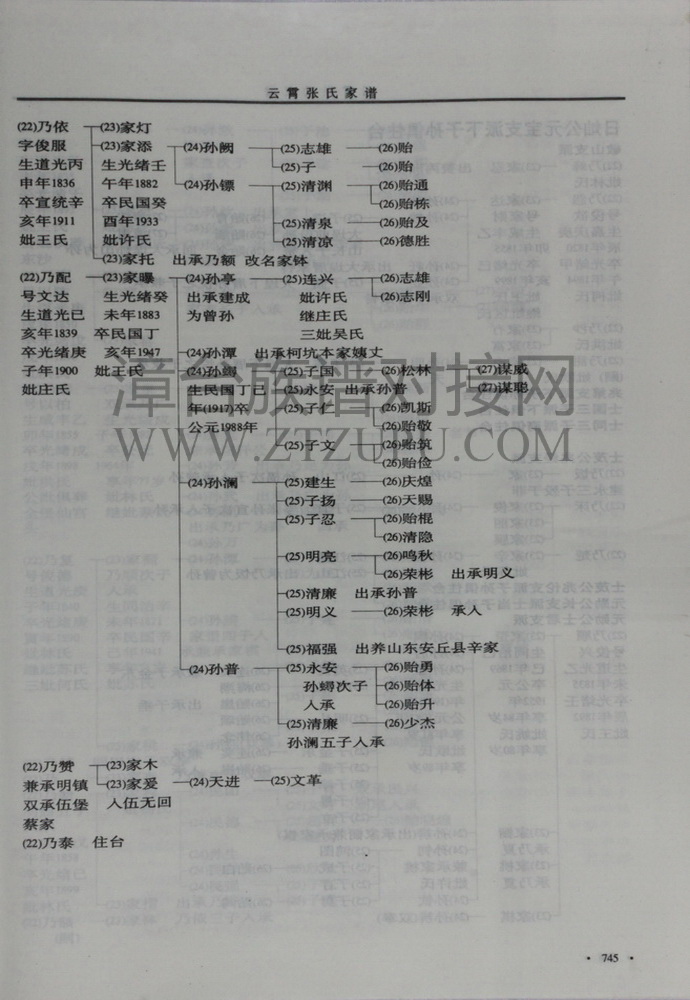 云霄张氏家谱
(22)乃依 (23)家灯
字俊服 (23)家添 (24)孙阙 (25)志雄 (26)贻
生道光丙 生光绪壬 (25)子 (26)贻
申年1836 午年1882 (24)孙镖 (25)清渊 (26)贻通
卒宣统辛 卒民国癸 (26)贻栋
亥年1911 酉年1933 (25)清泉 (26)贻及
妣王氏 妣许氏 (25)清凉 (26)德胜
(23)家托 出承乃额 改名家钵
(22)乃配 (23)家曝 (24)孙亭 (25)连兴 (26)志雄
号文达 生光绪癸 出承建成 妣许氏 (26)志刚
生道光己 未年1883 为曾孙 继庄氏
亥年1839 卒民国丁 三妣吴氏
卒光绪庚 亥年1947 (24)孙潭 出承柯坑本家姨丈
子年1900 妣王氏 (24)孙蟳 (25)子国 (26)松林 (27)谋威
妣庄氏 生民国丁巳 (25)永安 出承孙普 (27)谋聪
年(1917)卒 (25)子仁 (26)凯斯
公元1988年 (26)贻敬
(25)子文 (26)贻筑
(26)贻俭
(24)孙澜 (25)建生 (26)庆煌
(25)子扬 (26)天赐
(25)子忍 (26)贻棍
(26)清隐
(25)明亮 (26)鸣秋
(26)荣彬 出承明义
(25)清廉 出承孙普
(25)明义 (26)荣彬 承人
(25)福强 出养山东安丘县辛家
(24)孙普 (25)永安 (26)贻勇
孙蟳次子 (26)贻体
人承 (26)贻升
(25)清廉 (26)少杰
孙澜五子人承
(22)乃赞 (23)家木
兼承明镇 (23)家爱 (24)天进 (25)文革
双承伍堡 入伍无回
蔡家
(22)乃泰 住台
漳台族谱对接网
WWW.ZTZUPU.COM
· 745 ·